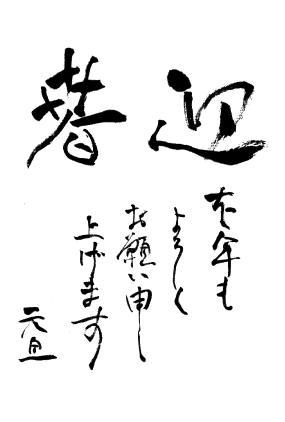 迎春
本年も
よろしく
お願い申し
上げます
元旦